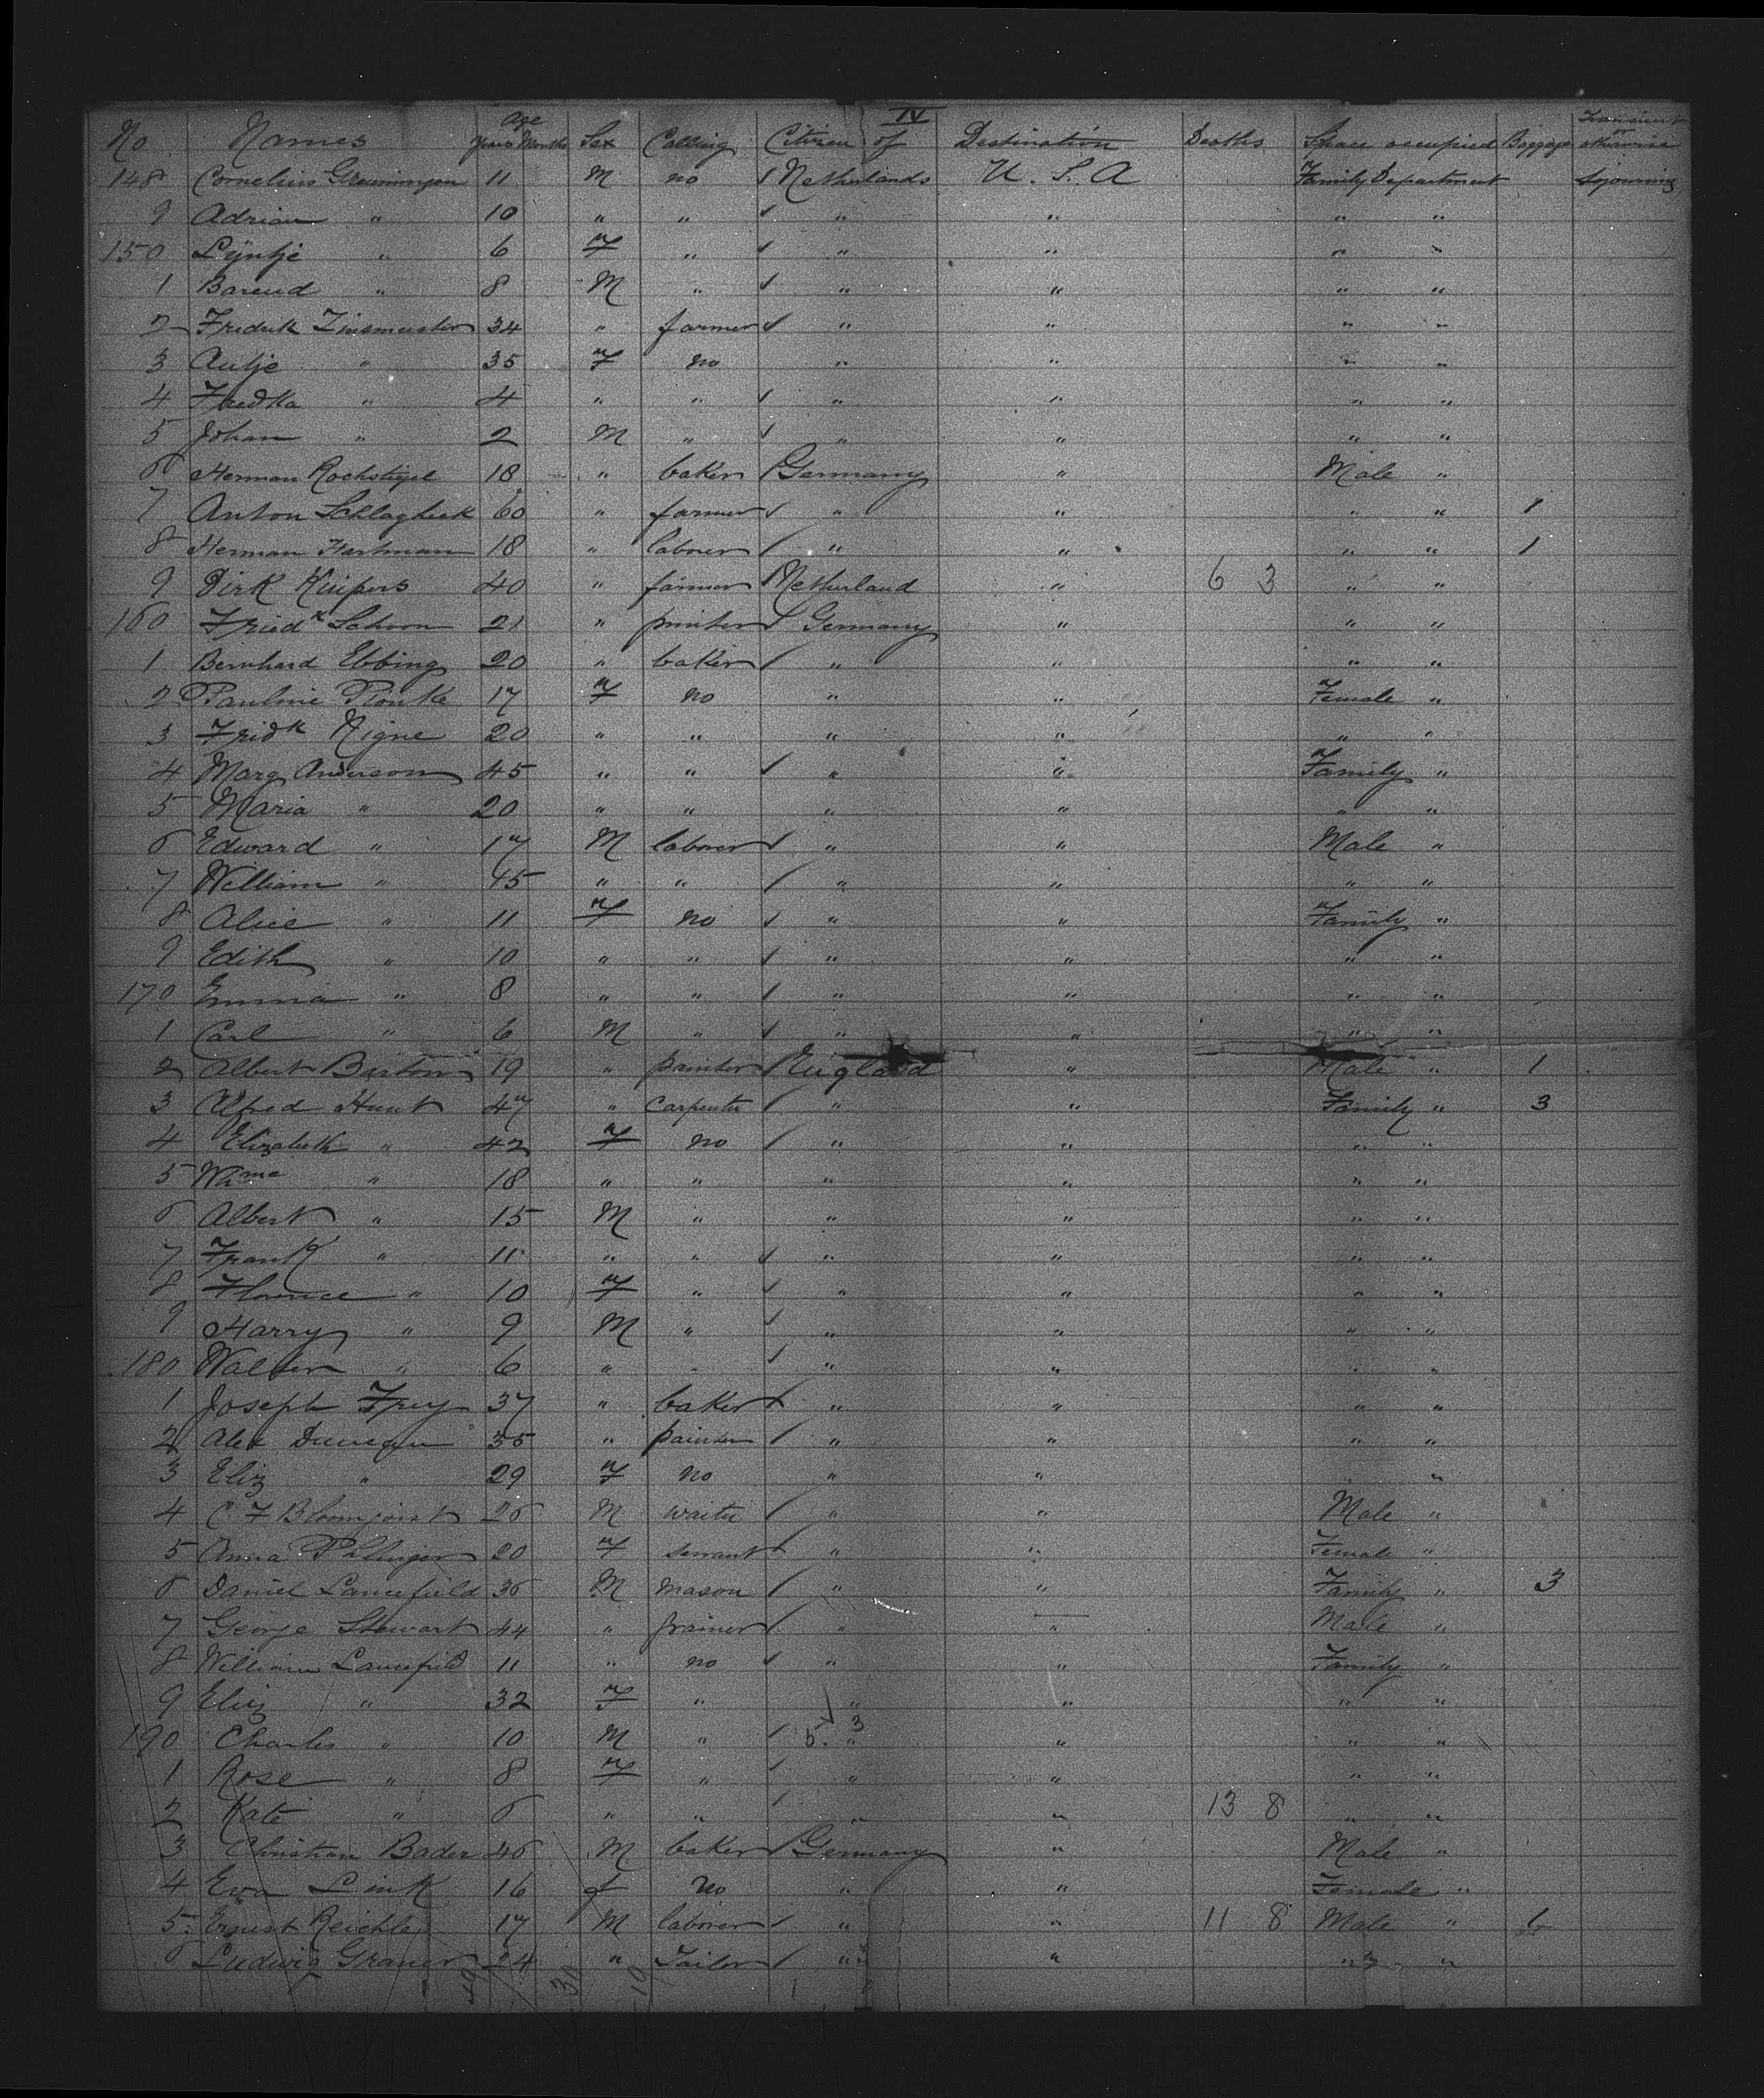 IV
No Names Age Years Months Sex Calling Citizen of Destination Deaths Space occupied Baggage Transient or otherwise
148 Cornelius Gruningen 11 M no Netherlands U. S. A Family Department Sojourning
9 Adrian " 10 " " " " " "
150 Lijntje " 6 F " " " " "
1 Barend " 8 M " " " " "
2 Fredrik Zinsmeister 34 " farmer " " " "
3 Autje " 35 F no " " " "
4 Fredka " 4 " " " " " "
5 Johan " 2 M " " " " "
6 Herman Rochstigel 18 " baker Germany " Male "
7 Anton Schlagheck 60 " farmer " " " " 1
8 Herman Hartman 18 " laborer " " " " 1
9 Dirk Kuipers 40 " farmer Netherland " 6 3 " "
160 Fried Schoon 21 " printer Germany " " "
1 Bernhard Ebbing 20 " baker " " " "
2 Pauline 17 F no " " Female "
3 Fridk Nigne 20 " " " " " "
4 Marg Anderson 45 " " " " Family "
5 Maria " 20 " " " " " "
6 Edward " 17 M laborer " " Male "
7 William " 45 " " " " " "
8 Alice " 11 F no " " Family "
9 Edith " 10 " " " " " "
170 Emma " 8 " " " " " "
1 Carl " 6 M " " " " "
2 Albert Barton 19 " painter England " Male " 1
3 Alfred Hunt 47 " Carpenter " " Family " 3
4 Elizabeth " 42 F no " " " "
5 " 18 " " " " " "
6 Albert " 15 M " " " " "
7 Frank " 11 " " " " " "
8 Florence " 10 F " " " " "
9 Harry " 9 M " " " " "
180 Walter " 6 " " " " " "
1 Joseph Frey 37 " baker " " " "
2 Alex Duncan 35 " painter " " " "
3 Eliz " 29 F no " " "
4 C F 26 M waiter " " Male "
5 Anna 20 F servant " " Female "
6 Daniel Lancefield 36 M mason " " Family " 3
7 George Stewart 44 " grainer " " Male "
8 William Lancefield 11 " no " " Family "
9 Eliz " 32 F " " " " "
190 Charles " 10 M " 5 3 " " " "
1 Rose " 8 F " " " " "
2 Kate " 6 " " " " 13 8 " "
3 Christian Bader 46 M baker Germany " Male "
4 Eva Link 16 f no " " Female "
5 Ernest Reichle 17 M laborer " " 11 8 Male " 1
6 Ludwig Graner 24 " Tailor " " " "
49 30 19